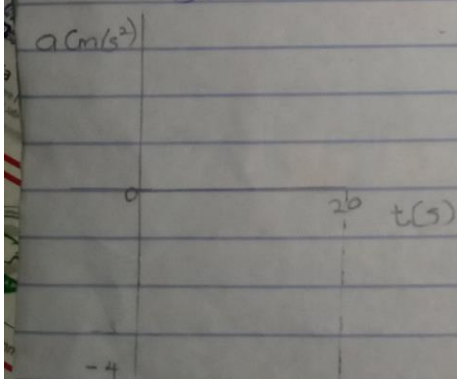 a(m/s²)
0
20
t(s)
-4